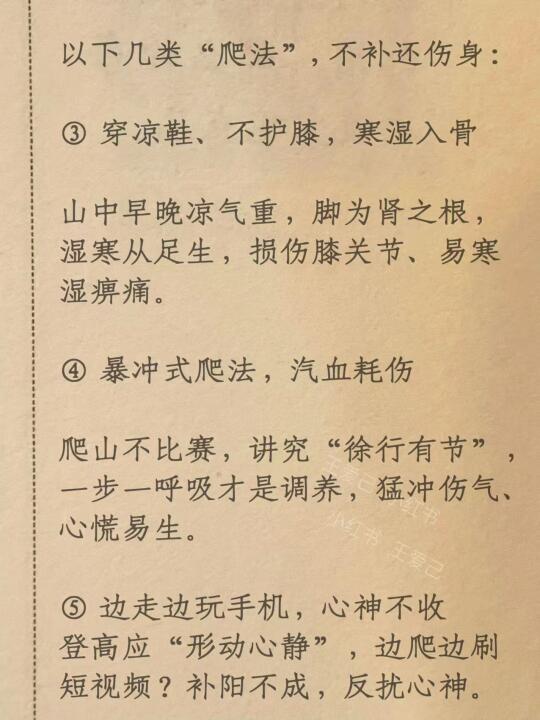 以下几类“爬法”，不补还伤身：
③ 穿凉鞋、不护膝，寒湿入骨
山中早晚凉气重，脚为肾之根，
湿寒从足生，损伤膝关节、易寒
湿痹痛。
④ 暴冲式爬法，汽血耗伤
爬山不比赛，讲究“徐行有节”，
一步一呼吸才是调养，猛冲伤气、
心慌易生。
⑤ 边走边玩手机，心神不收
登高应“形动心静”，边爬边刷
短视频？补阳不成，反扰心神。
王爱己
小红书
小红书 王爱己